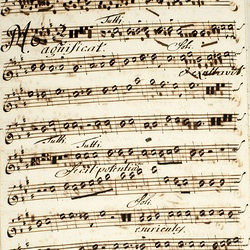 Tutti
Magnificat. Sol.
Exultavit
Tutti Tutti
Fecit potentiam
Sol.
esurientes